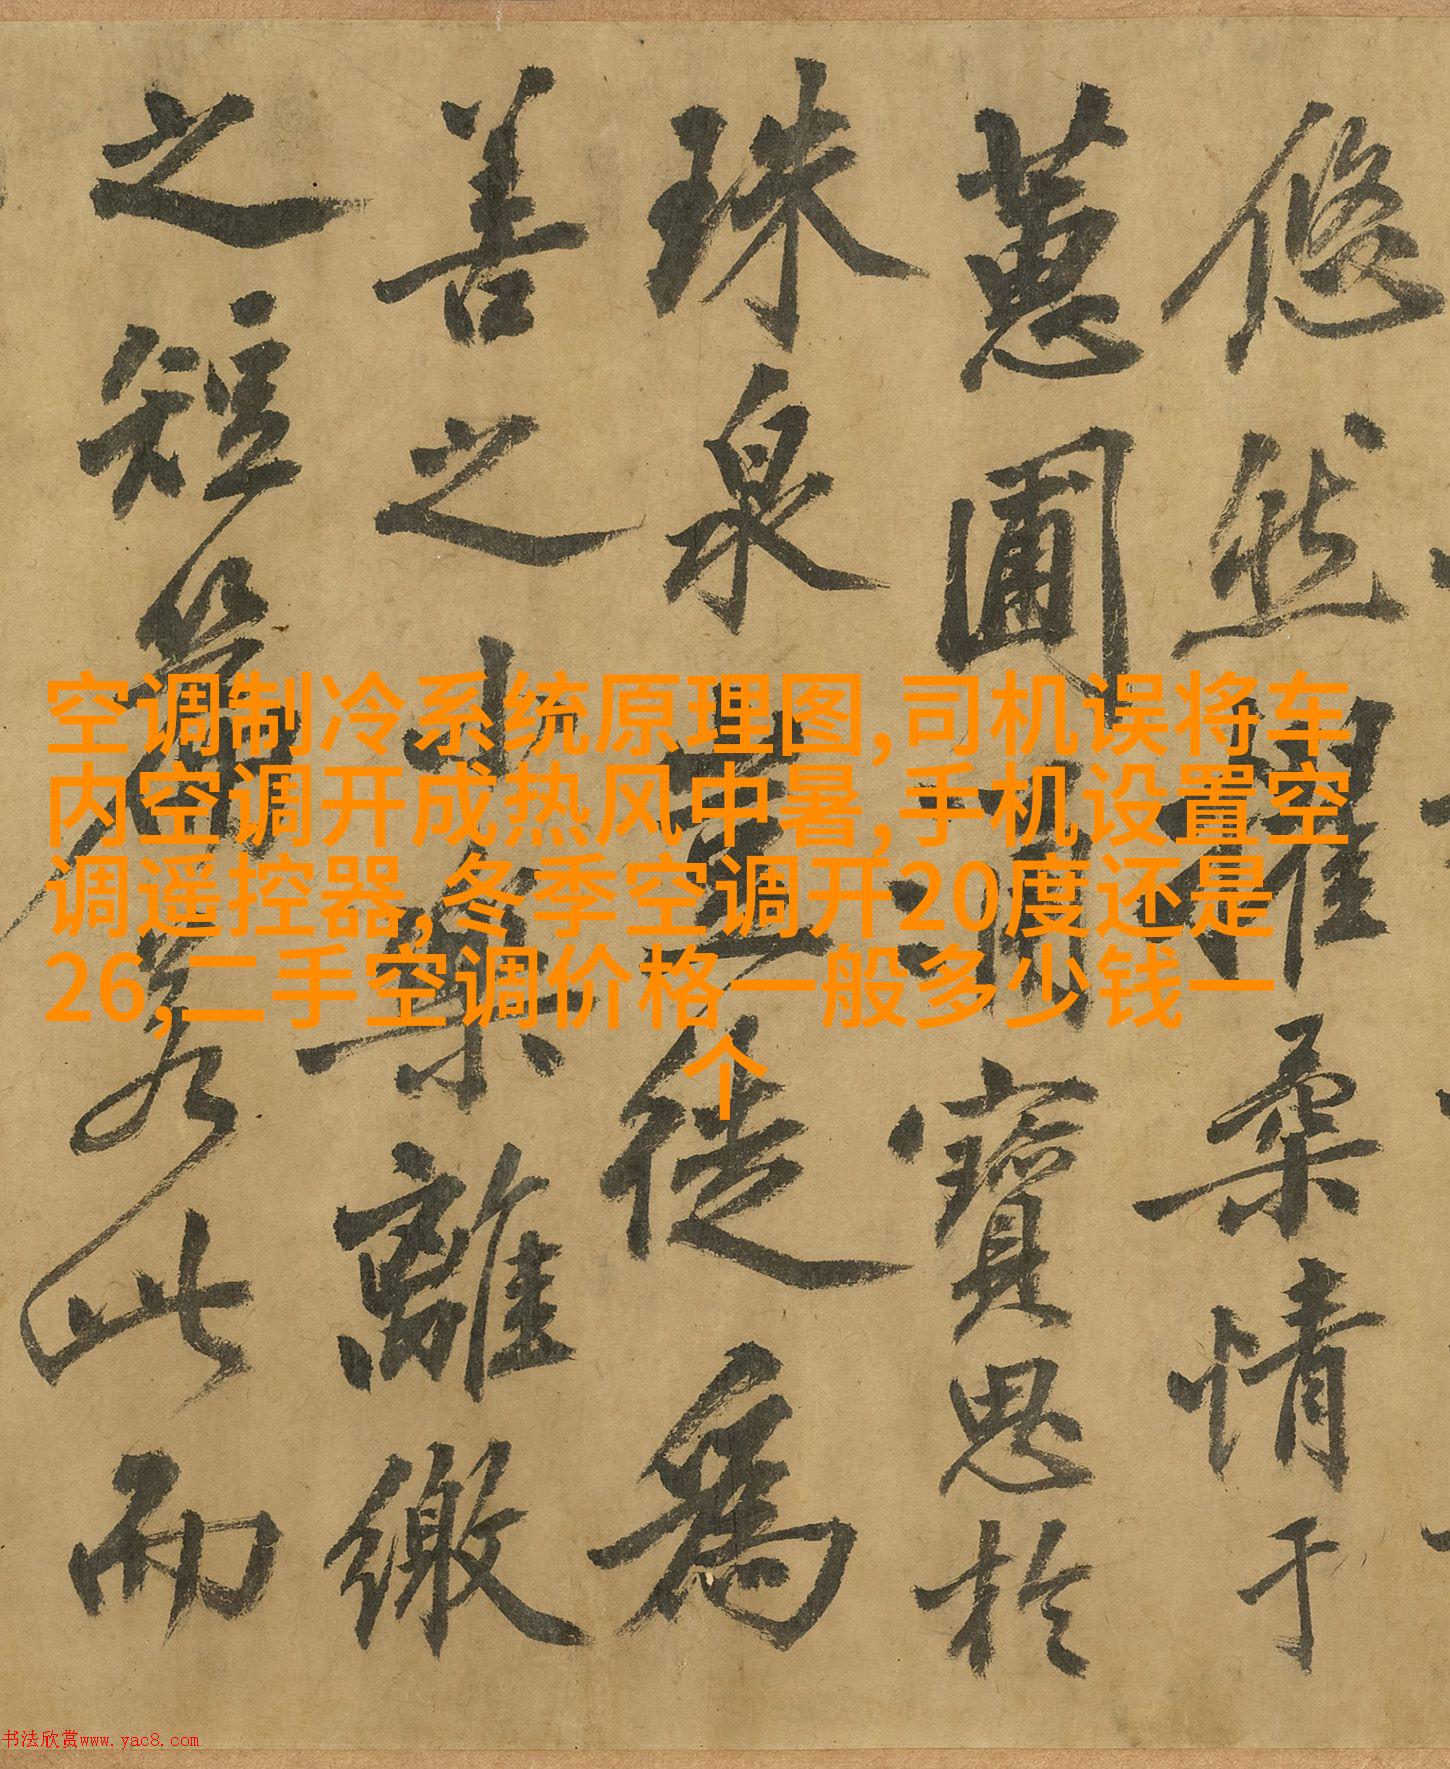 悠然擢柔情于
蕙圃涌寶思於
珠泉豈徒為
善之小樂離繳
之短篇若此而
空调制冷系统原理图,司机误将车
内空调开成热风中暑,手机设置空
调遥控器,冬季空调开20度还是
26,二手空调价格一般多少钱一
个
书法欣赏www.yac8.com